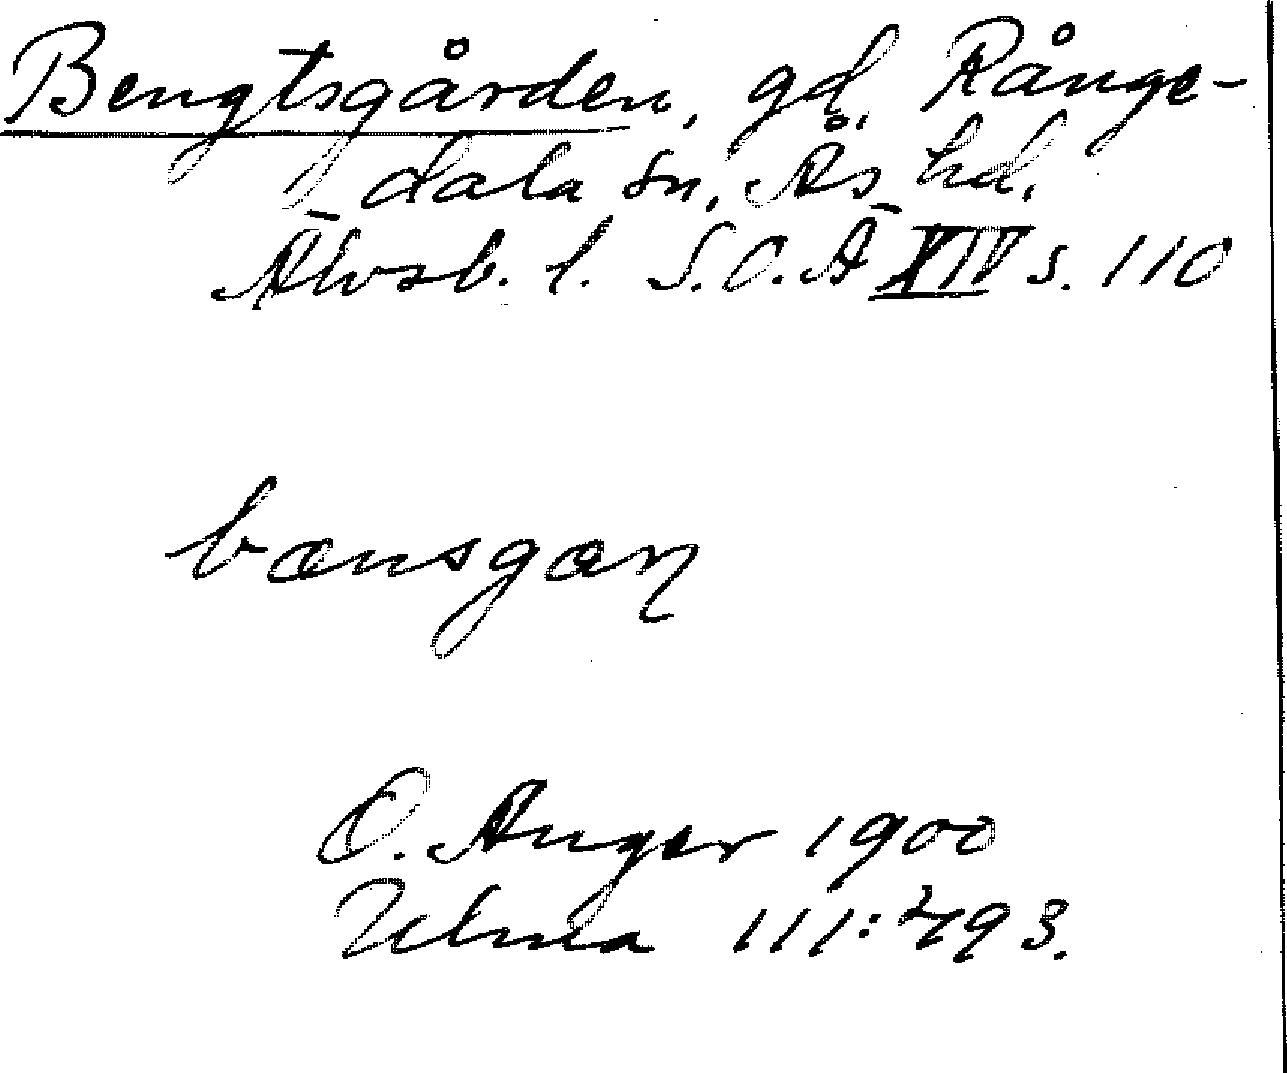 Bengtsgården, gd, Långe-
dala sn. Ås hd.
Älvsb. l. S.O.Ä XIV s. 110
bænsgaɳ
O. Anger 1900
Ulma 111:493.